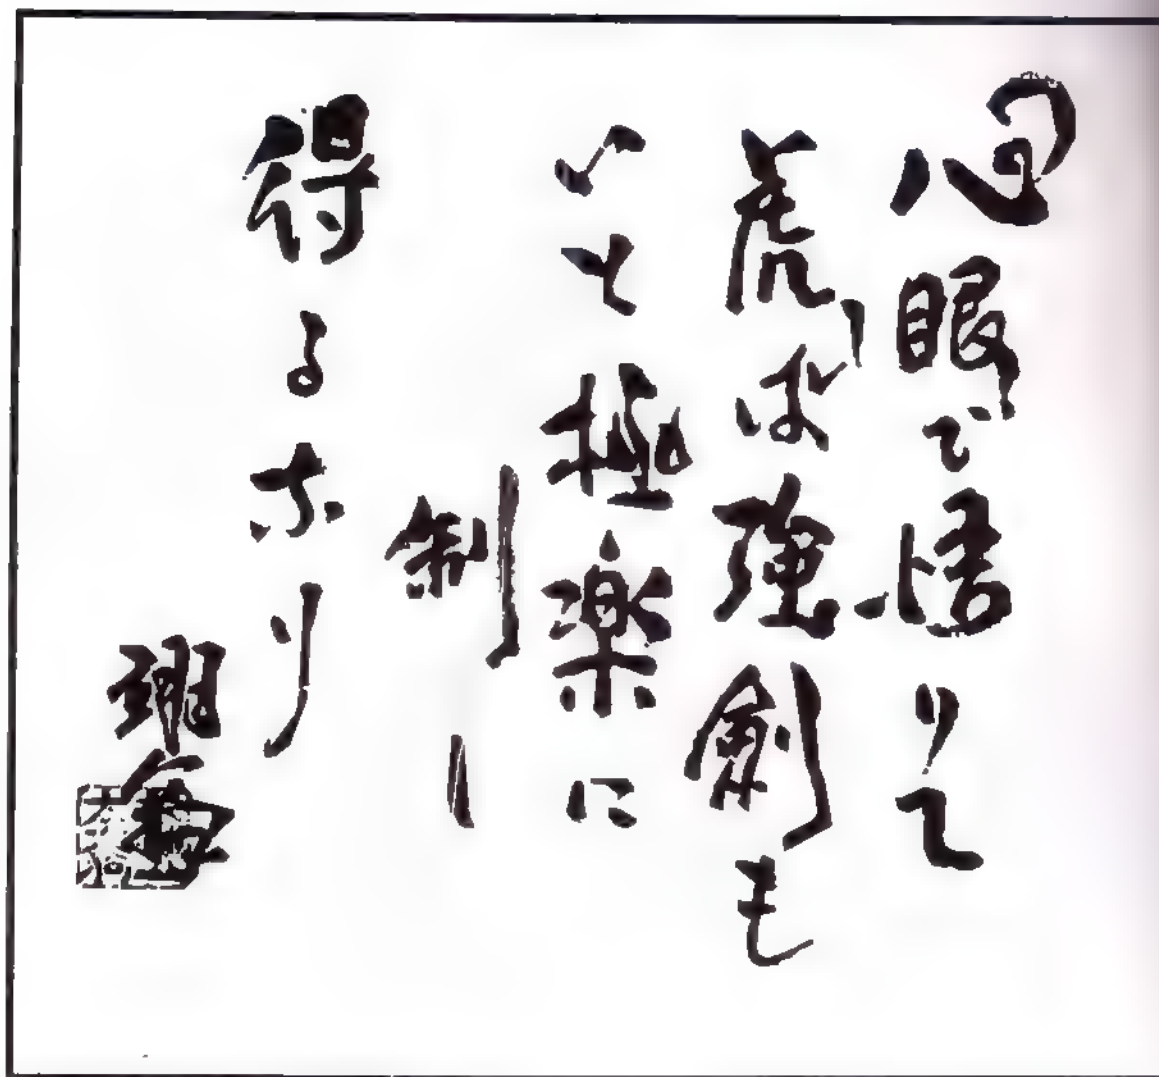 心眼で悟りて
虎ば強劍も
いと極楽に
制し
得るなり